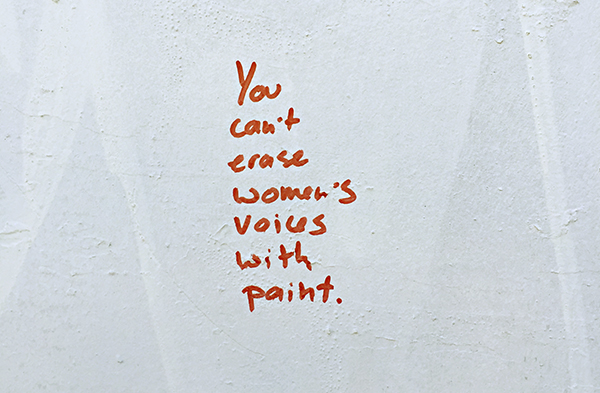 You
can't
erase
women's
voices
with
paint.